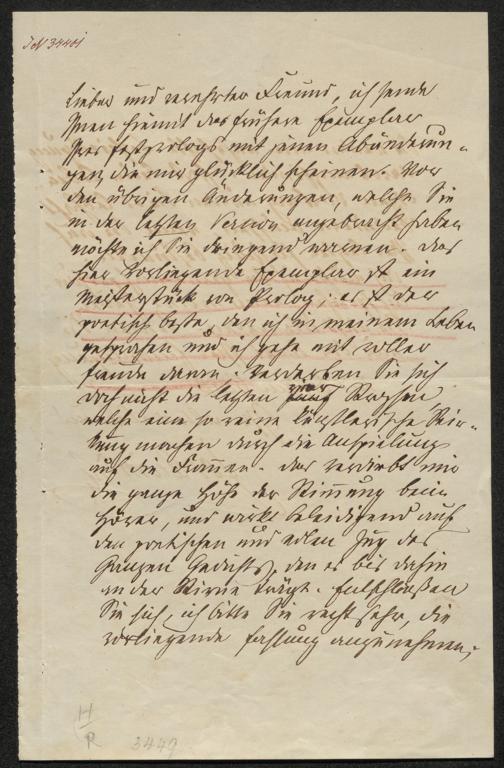 J N 34401
Lieber und verehrter Freund, ich sende
Ihnen hiemit das frühere Exemplar
Ihres Festprologs mit jenen Abänderun-
gen, die mir glücklich scheinen. Vor
den übrigen Änderungen, welche Sie
in der letzten Version angebracht haben
möchte ich Sie dringend warnen. Das
hier vorliegende Exemplar ist ein
Meisterstück von Prolog; es ist der
poetisch beste, den ich in meinem Leben
gesprochen und ich gehe mit voller
Freude daran. Verderben Sie sich
doch nicht die letzten vier Strophen
welche eine so reine künstlerische Wir-
kung machen durch die Anspielung
auf die Frauen. Das verdirbt mir
die ganze Höhe der Stimmung beim
Hörer, und wirkt beleidigend auf
den poetischen und edlen Zug des
Ganzen Gedichts, den es bis dahin
an der Stirne trägt. Entschließen
Sie sich, ich bitte Sie recht sehr, die
vorliegende Fassung anzunehmen;
H
R
3449